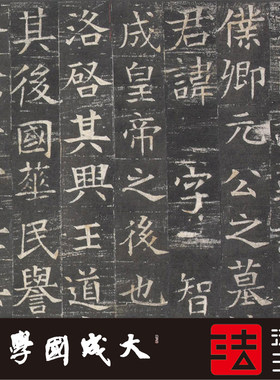 僕卿元公之墓
君諱 字 智
成皇帝之後也
洛啓其興王道
其後國華民譽
大成國學
法